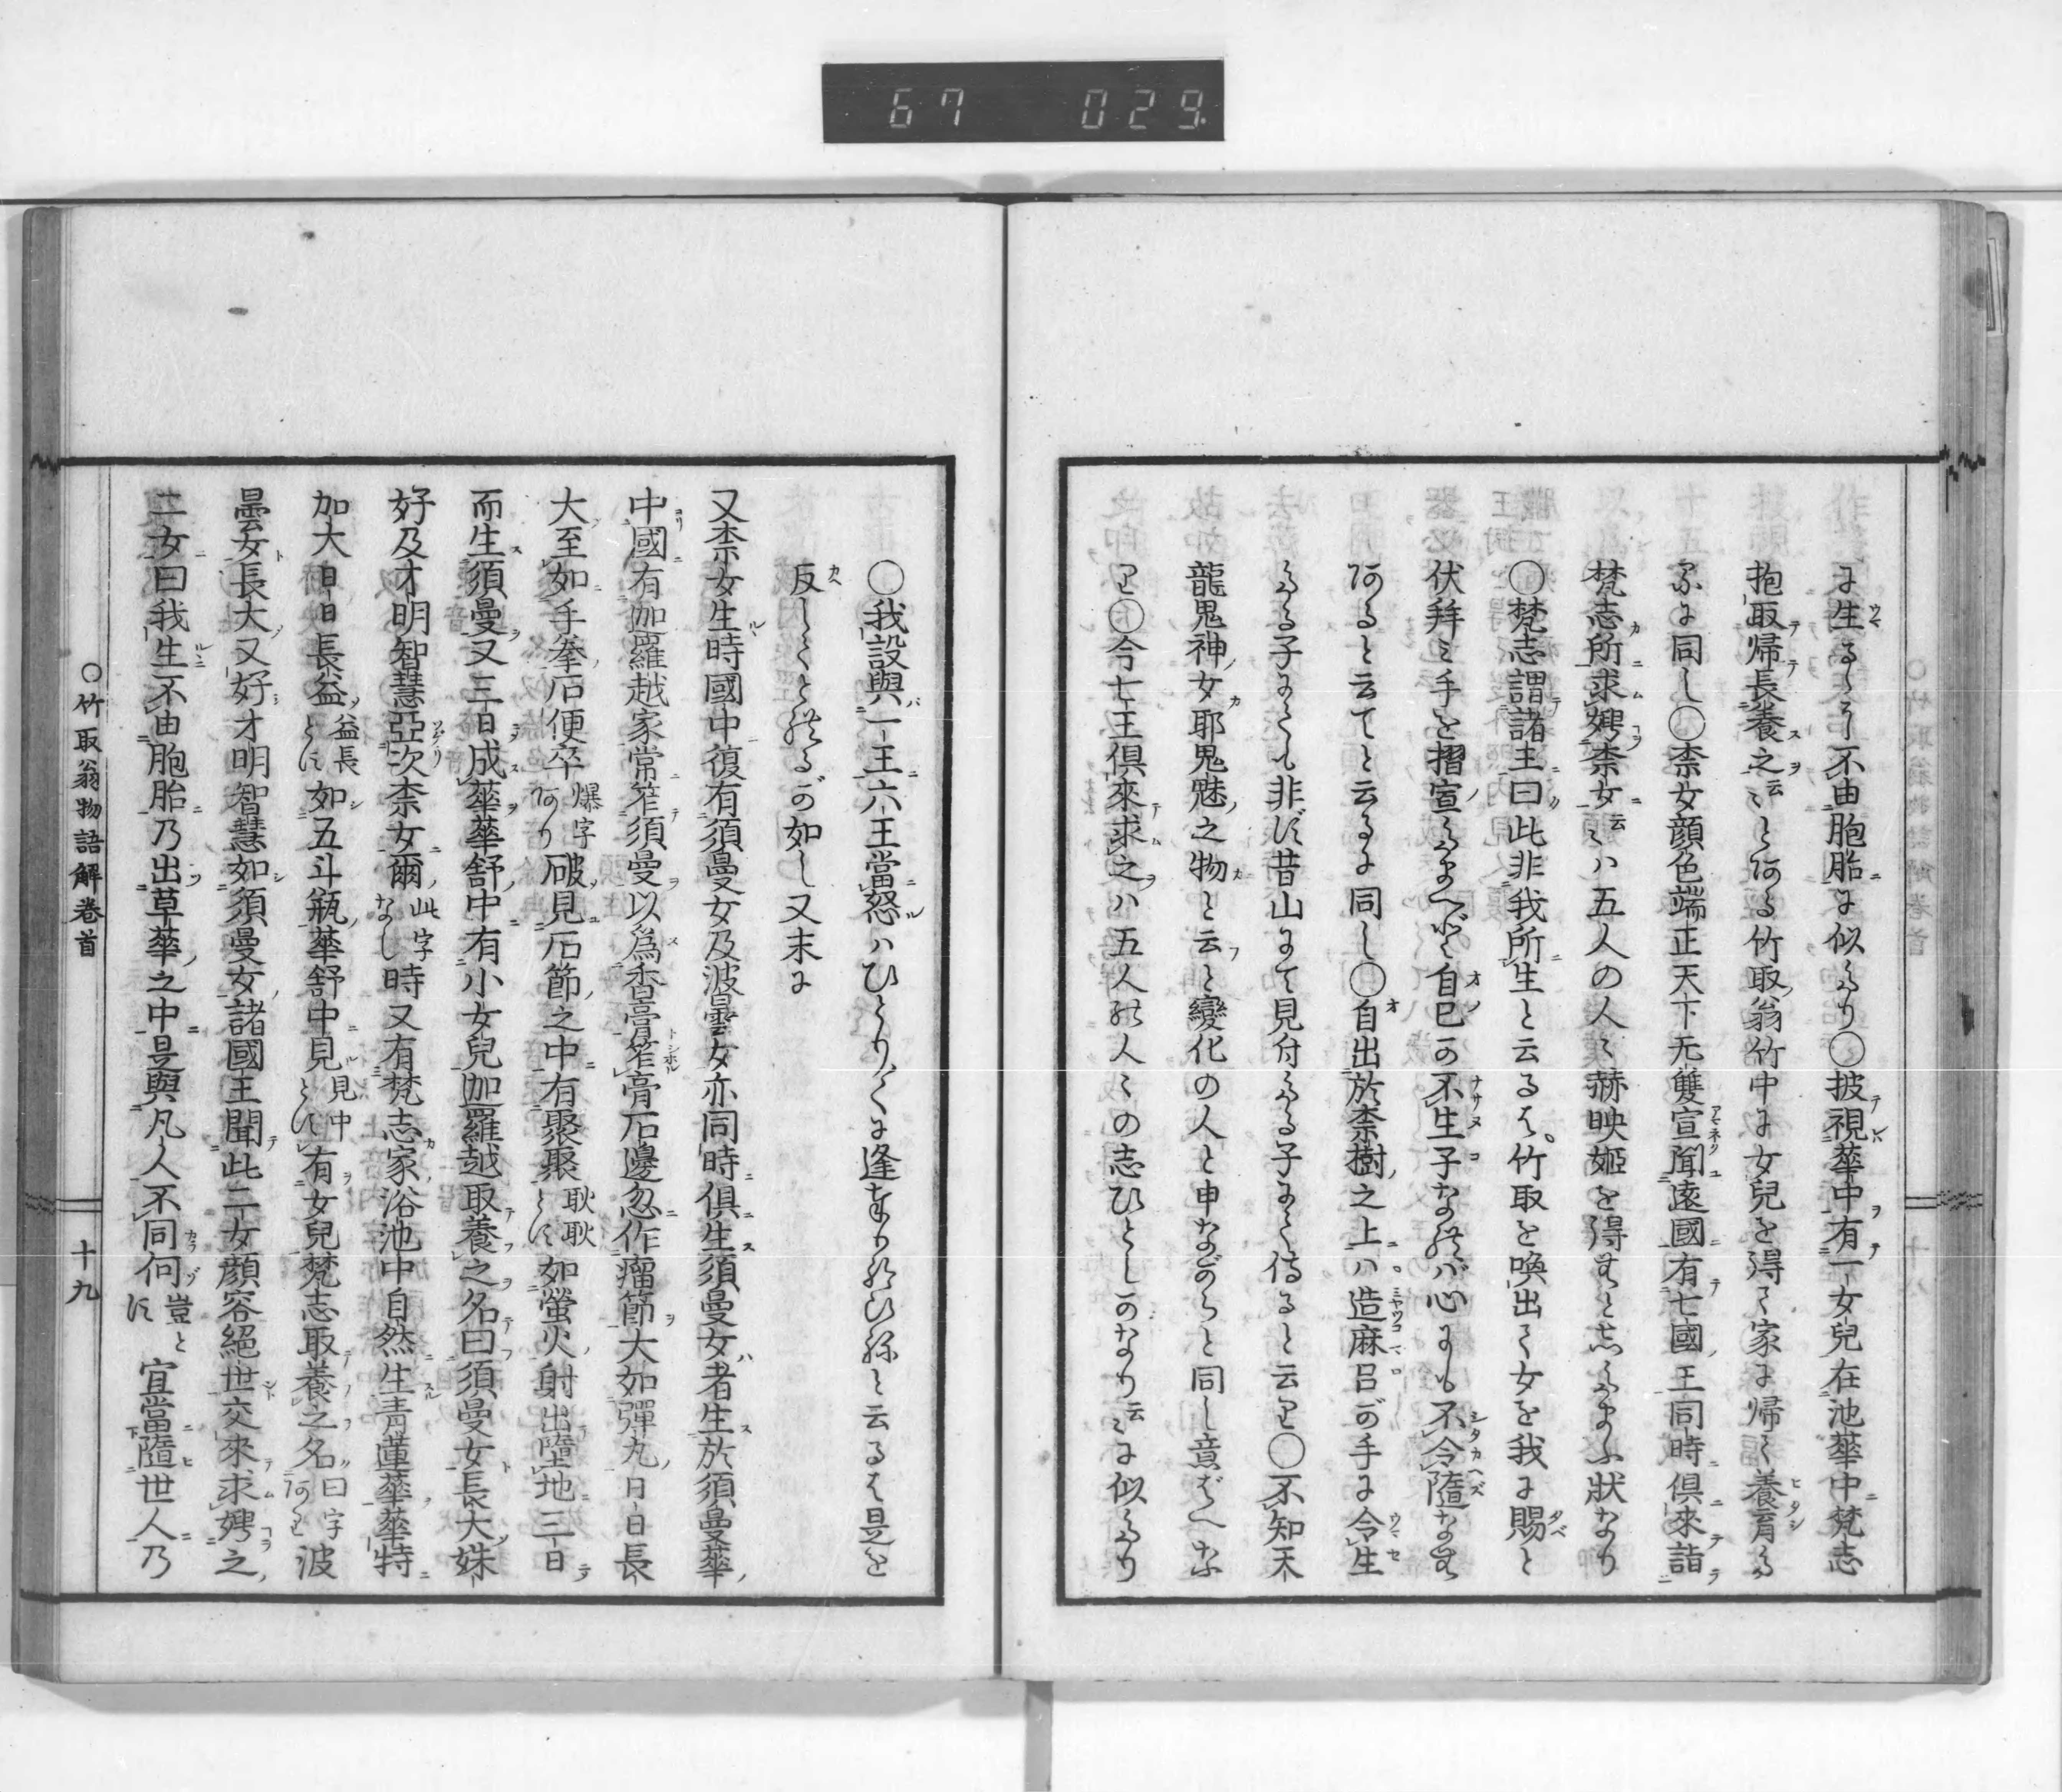 67 029
に生るゝ不由胞胎に似たり〇披視華中有一女兒在池華中梵志
抱取帰長養之云々とある竹取翁竹中に女兒を得て家に帰て養育る
に同し〇柰女顔色端正天下无雙宣聞遠國有七國王同時倶來詣
梵志所求娉柰女云々ハ五人の人々赫映姫を得むと志たまふ状なり
〇梵志謂諸王曰此非我所生と云るは竹取を喚出て女を我に賜と
伏拜ミ手を摺宣たまへど自己の不生子なれバ心にも不令隨なむ
あると云てと云るに同し〇自出於柰樹之上ハ造麻呂が手に令生
たる子にても非ず昔山にて見付たる子にて侍ると云り〇不知天
龍鬼神女耶鬼魅之物と云と變化の人と申ながらと同し意ばへな
り〇今七王倶來求之ハ五人の人々の志ひとしかなり云々に似たり
〇我設與一王六王當怒ハひとり〳〵に逢奉り給ひねと云るは是を
反しくと給るが如し又末に
又柰女生時國中復有須曼女及波曇女亦同時倶生須曼女者生於須曼華
中國有伽羅越家常笮須曼以為香膏笮膏石邊忽作瘤節大如彈丸日日長
大至如手拳石便卒爆字あり破見石節之中有聚聚耿耿とす如螢火射出墮地三日
而生須曼又三日成華華舒中有小女兒伽羅越取養之名曰須曼女長大姝
好及才明智慧亞次柰女爾此字なし時又有梵志家浴池中自然生青蓮華華特
加大日日長益益長とす如五斗瓶華舒中見見中とす有女兒梵志取養之名曰字あり波
曇女長大又好才明智慧如須曼女諸國王聞此二女顔容絕世交來求娉之
二女曰我生不由胞胎乃出草華之中是與凡人不同何豈とす宜當隨世人乃
〇竹取翁物語解卷首
十九